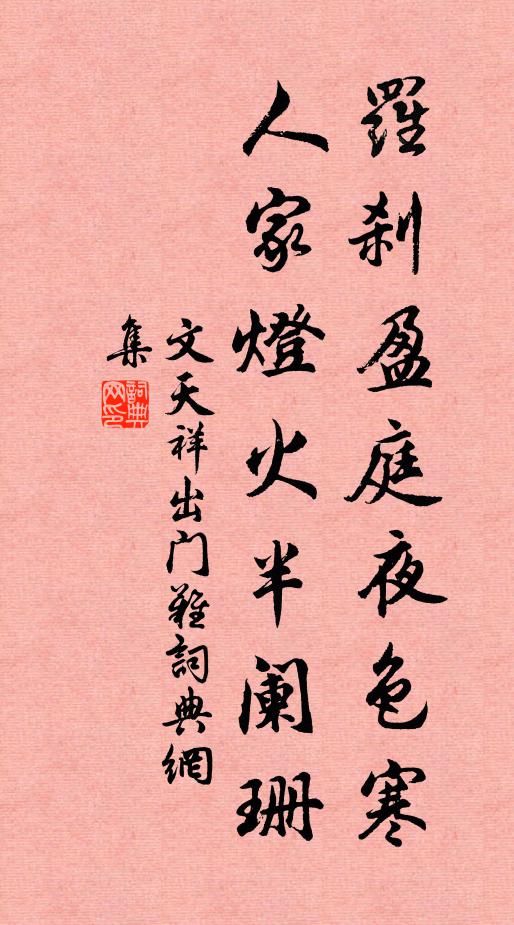 羅刹盈庭夜色寒
人家燈火半闌珊
文天祥出門難詞典網
集
詞典網印